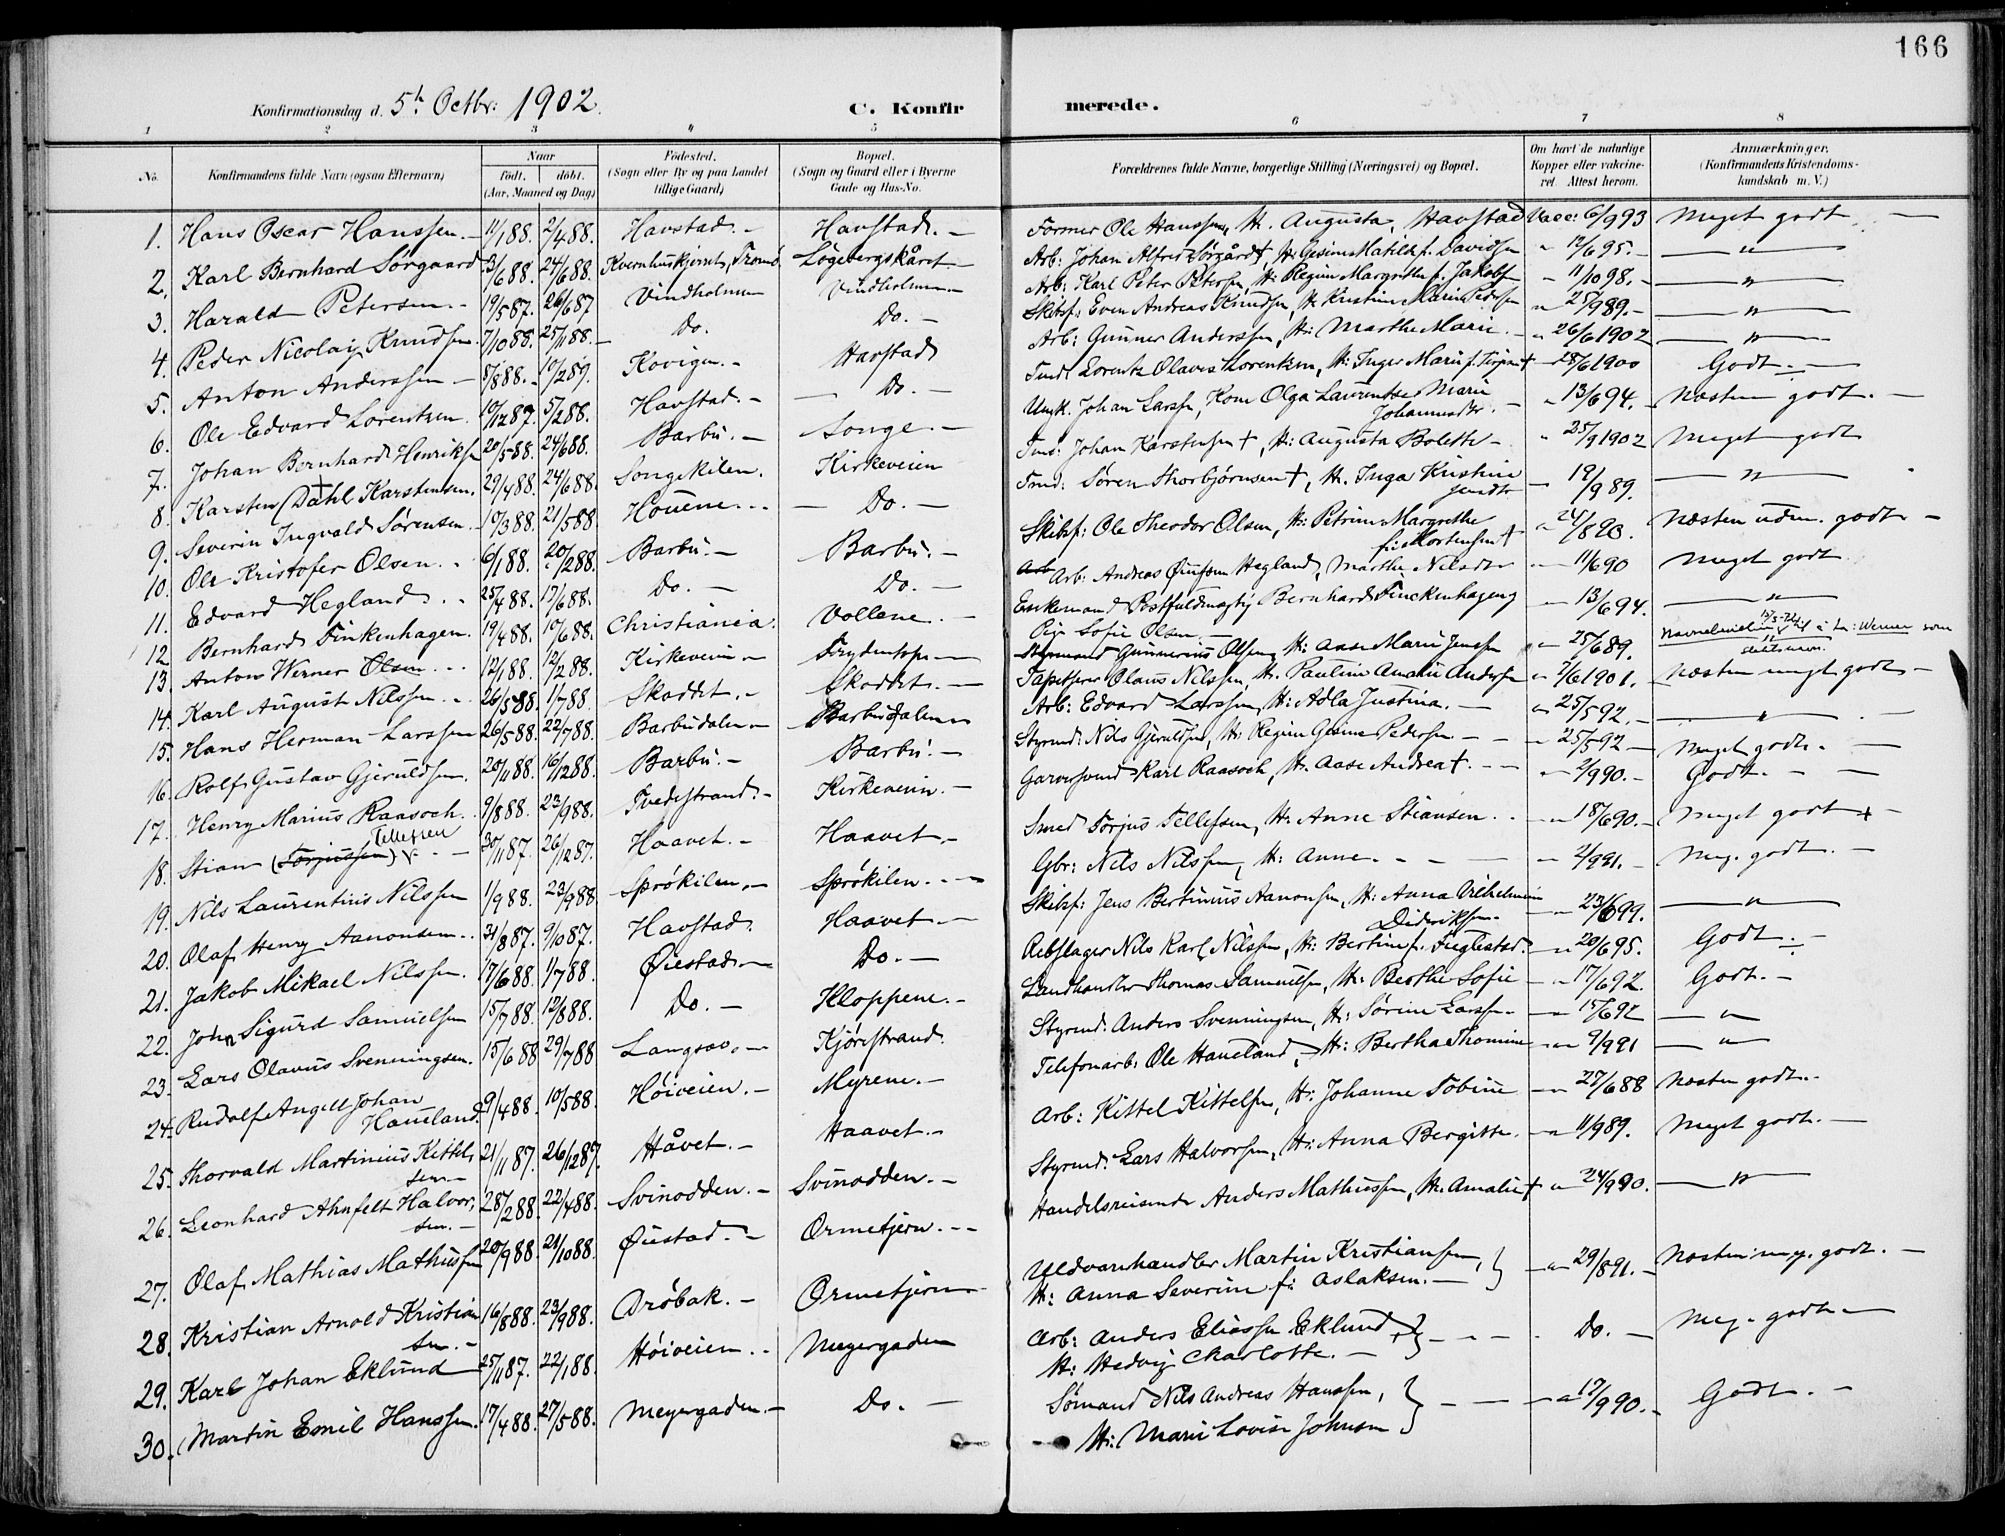 166
Konfirmationsdag d. 5te Octbr: 1902. C. Konfir merede.
1 2 3 4 5 6 7 8
No. Konfirmandens fulde Navn (ogsaa Efternavn) Naar født. døbt. (Aar, Maaned og Dag) Fødested. (Sogn eller By og paa Landet tillige Gaard) Bopæl. (Sogn og Gaard eller i Byerne Gade og Hus-No. Forældrenes fulde Navne, borgerlige Stilling (Næringsvei) og Bopæl. Om havt de naturlige Kopper eller vakcineret. Attest herom. Anmærkninger. (Konfirmandens Kristendomskundskab m. V.)
1. Hans Oscar Hanssen. 11/1 88. 2/4 88. Havstad. Havstad. Former Ole Hanssen, H. Augusta, Havstad Vacc: 6/9 93 Meget godt
2. Karl Bernhard Sørgaard 3/6 88. 24/6 88. Kvernhuskjernet, Tromø Løgebergskåret Arb: Johan Alfred Sørgård†, H: Gesine Matilde f. Davidsen " 12/6 95. "
3. Harald Petersen. 19/5 87. 26/6 87 Vindholmen Vindholmen Arb: Karl Peter Petersen, H: Regine Margrethe f. Jakobs " 11/10 98. "
4. Peder Nicolay Knudsen 7/10 88. 25/11 88. Do. Do. Skibsf: Even Andreas Knudsen, H. Kristine Marie Pedersen " 25/9 89. "
5. Anton Anderssen 8/8 88. 10/2 89. Kovigen. Havstad Arb: Gunner Anderssen, H: Marthe Marie. " 26/6 1902 "
6. Ole Edvard Lorentzen 10/12 87. 5/2 88. Havstad. Do. Tmd: Lorentz Olaves Lorentzen, H: Inger Marie f. Terjesen† 28/6 1900 Godt.
7. Johan Bernhard Henriksen 20/5 88. 24/6 88. Barbu. Songe. Ungk. Johan Larsen, Kone Olga Laurentse Marie Johannesdr. " 13/6 94. Næsten godt.
8. Karsten (Dahl Karstensen. 29/4 88. 24/6 88. Songekilen. Kirkeveien Tmd: Johan Karstensen †, H: Augusta Bolette " 25/9 1902 Meget godt
9. Severin Ingvald Sørensen 10/3 88. 21/5 88. Houene. Do. Tmd: Søren Thorbjørnsen †, H. Inga Kristine 19/9 89. "
10. Ole Kristofer Olsen. 6/1 88. 20/2 88. Barbu. Barbu. Skibsf: Ole Theodor Olsen, H: Petrine Margrethe f: Mortensen † " 24/8 93. Næsten udm. godt
11. Edvard Hegland. 25/4 88. 17/6 88. Do. Do. Arb Arb: Andreas Hegland, Marthe Nilsdr 11/6 90 Meget godt
12 Bernhard Finkenhagen. 19/4 88. 10/6 88. Christiania. Vollene. Enkemand Postfuldmægtig Bernhard Finckenhagen 13/6 94. "
13. Anton Werner Olsen 12/1 88. 12/2 88. Kirkeveien Frydentopp Pige Sofie Olsen. Styrmand Gunnerius Olsen, H: Aase Marie Jenssen " 25/6 89. "
14. Karl August Nilssen 26/5 88. 1/7 88. Skoddet. Skoddet. Tapetserer Olaus Nilssen, H. Pauline Amalie Andersen 7/6 1901. Næsten meget godt
15. Hans Herman Larssen 26/5 88. 22/7 88. Barbudalen Barbudalen Arb: Edvard Larssen, H: Adla Justina. " 25/5 92. "
16. Rolf Gustav Gjeruldsen. 20/11 88. 16/12 88. Barbu. Barbu. Styrmd: Nils Gjeruldsen, H: Regine Gesine Pedersen 25/5 92 Meget godt.
17. Henry Marius Raasoch 9/8 88. 23/9 88. Tvedestrand. Kirkeveien. Garversvend Karl Raasoch, H. Aase Andrea †. 2/9 90. Godt.
18. Stian (Torjussen) Tellefsen 30/11 87. 26/12 87. Haavet. Haavet. Smed Torjus Tellefsen, H: Anne Stiansen. 18/6 90. Meget godt
19. Nils Laurentius Nilssen 1/9 88. 23/9 88 Sprøkilen. Sprøkilen. Gbr: Nils Nilssen, H: Anne. 2/9 91. Meg. godt.
20. Olaf Henry Aanonsen. 31/8 87. 9/10 87. Havstad. Haavet. Skibsf: Jens Bertinius Aanonsen, H: Anna Vilhelmine Dideriksen. 23/6 99. "
21. Jakob Mikael Nilssen. 17/6 88. 1/7 88. Øiestad. Do. Rebslager Nils Karl Nilssen, H: Bertine f. Fuglestad. 20/6 95. Godt.
22. John Sigurd Samuelsen 15/7 88. 12/8 88. Do. Kloppene. Landhandler Thomas Samuelsen, H: Berthe Sofie 17/6 92. Godt.
23. Lars Olavus Svenningsen. 15/6 88 29/7 88 Langsæv. Kjørrestrand. Styrmd: Anders Svenningsen, H: Sørine Larssen. 15/6 92 "
24. Rudolf Angell Johan Haueland. 9/4 88. 10/5 88. Høiveien. Myrene. Telefonarb: Ole Haueland, H: Bertha Thomine 9/9 91 "
25. Thorvald Martinius Kittelsen. 21/11 87. 26/12 87. Håvet. Haavet. Arb: Kittel Kittelsen, H: Johanne Tobine 27/6 88 Næsten godt.
26. Leonhard Ahnfelt Halvorsen. 28/2 88. 22/4 88. Svinodden. Svinodden. Styrmd: Lars Halvorsen, H: Anna Bergitte. 11/9 89. Meget godt.
27. Olaf Mathias Mathissen 20/9 88. 21/10 88. Øiestad. Ormetjern. Handelsreisende Anders Mathissen, H: Amalie † 24/9 90. "
28. Kristian Arnold Kristiansen. 16/8 88. 23/9 88. Drøbak. Ormetjern Uldvarehandler Martin Kristiansen, H: Anna Severine f: Aslaksen. 29/8 91. Næsten meg. godt.
29. Karl Johan Eklund 25/11 87. 22/1 88. Høiveien. Meyergaden Arb: Anders Eliassen Eklund, H: Hedvig Charlotte. Do. Meg. godt
30. Martin Emil Hanssen. 17/4 88. 27/5 88. Meyergaden. Do. Sømand Nils Andreas Hanssen, H: Marie Lovise Johnsen 17/9 90. Godt.